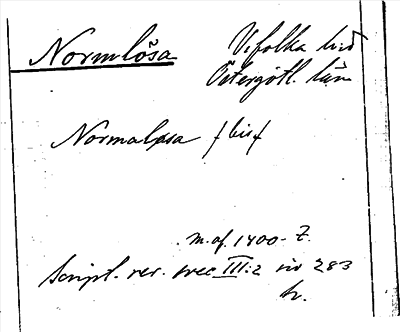 Normlösa
Vifolka hd
Östergötl. län
Normaløsa (bis)
m. af. 1400-t.
Script. rer. svec III:2 sid 283